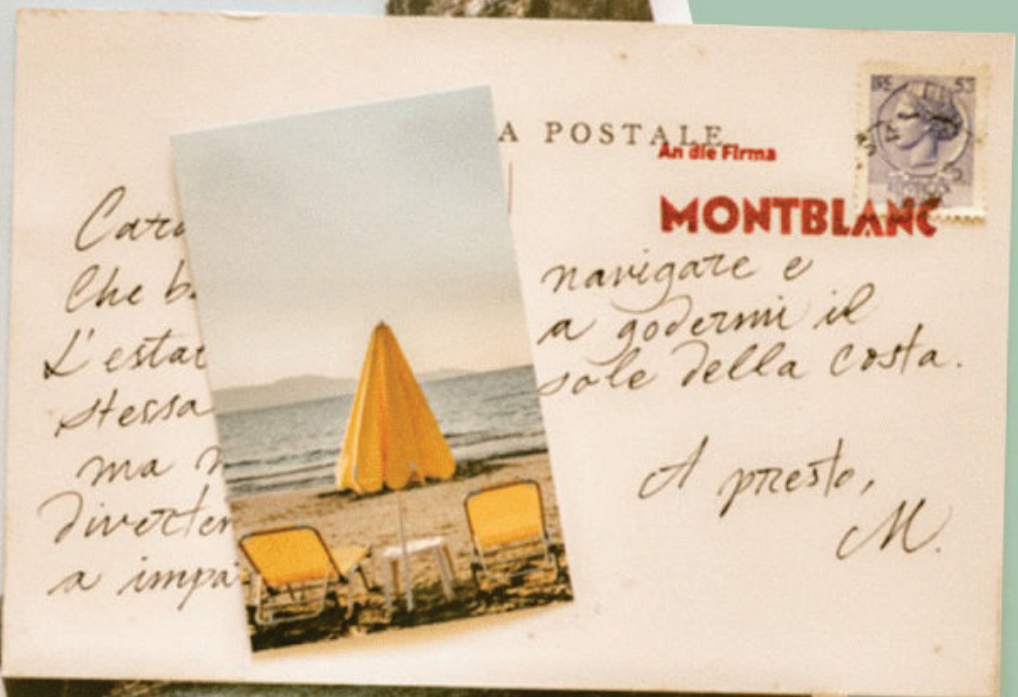 A POSTALE
An die Firma
MONTBLANC
Che
L'estat
stessa
ma
a impa
navigare e
a godermi il
sole della costa.
A presto,
M.